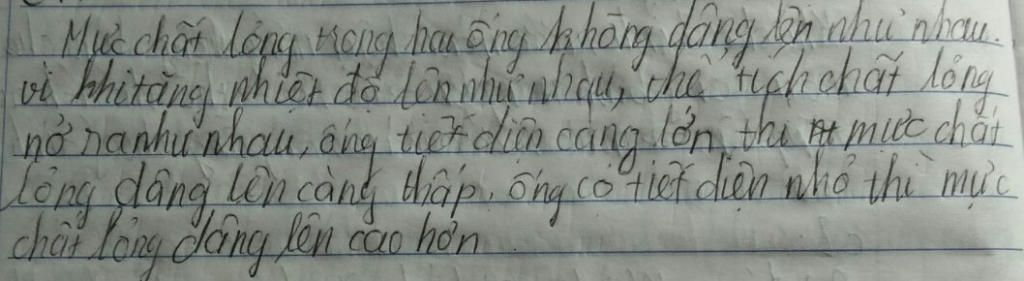 Mực chất lỏng trong hai ống không dâng lên như nhau.
vì khi tăng nhiệt độ lên như nhau, thể tích chất lỏng
nở ra như nhau, ống tiết diện càng lớn thì mực chất
lỏng dâng lên càng thấp. ống có tiết diện nhỏ thì mực
chất lỏng dâng lên cao hơn